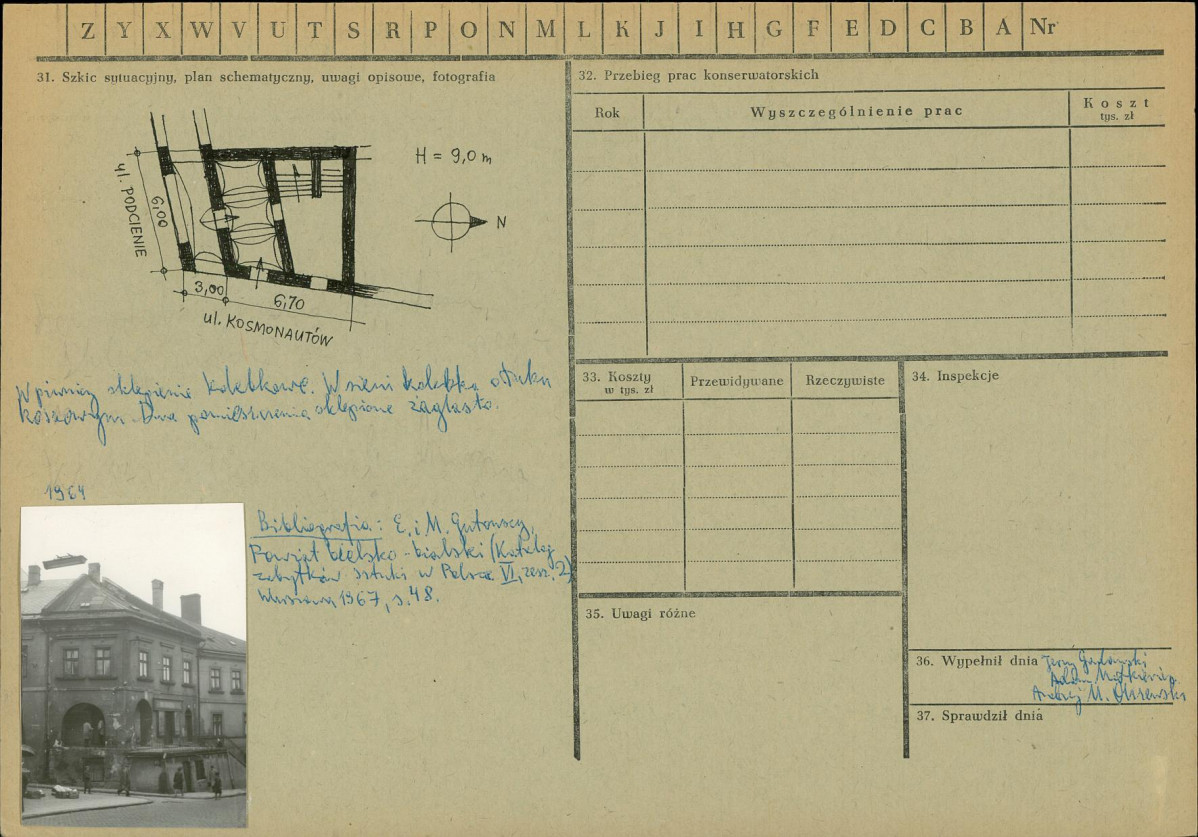 Z Y X W V U T S R P O N M L K J I H G F E D C B A Nr
31. Szkic sytuacyjny, plan schematyczny, uwagi opisowe, fotografia
ul. PODCIENIE
6,00
3,00
6,70
ul. KOSMONAUTÓW
H = 9,0 m
N
W piwnicy sklepienie kolebkowe. W sieni kolebka o łuku
koszowym. Dwa pomieszczenia sklepione żaglasto.
1964
Bibliografia: E. i M. Gutowscy,
Powiat bielsko-bialski (Katalog
zabytków sztuki w Polsce VI, zesz. 2)
Warszawa 1967, s. 48.
32. Przebieg prac konserwatorskich
Rok
Wyszczególnienie prac
Koszt
tys. zł
33. Koszty
w tys. zł
Przewidywane
Rzeczywiste
34. Inspekcje
35. Uwagi różne
36. Wypełnił dnia Jerzy
Adam
Andrzej M. Olszewski
37. Sprawdził dnia